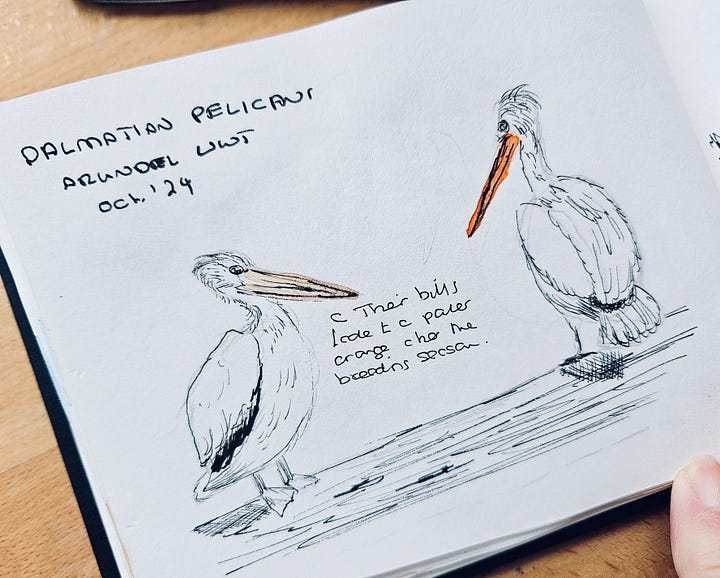 DALMATIAN PELICANS
ARUNDEL WWT
Oct. '24
← Their bills
fade to a paler
orange after the
breeding season.